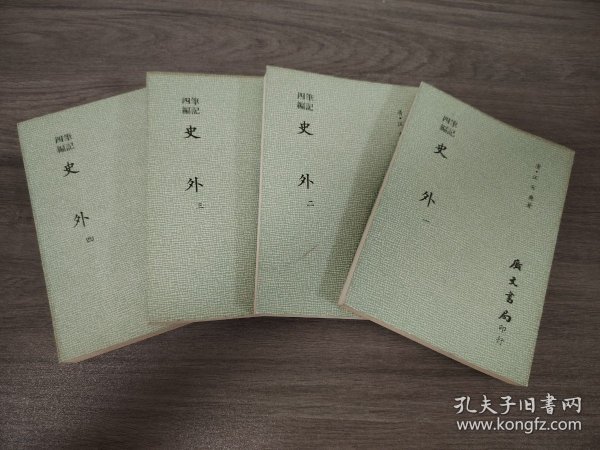 筆記
四編
史外
一
清·汪有典著
廣文書局
印行
筆記
四編
史外
二
清·汪
筆記
四編
史外
三
筆記
四編
史外
四
孔夫子旧书网
www.kongfz.com